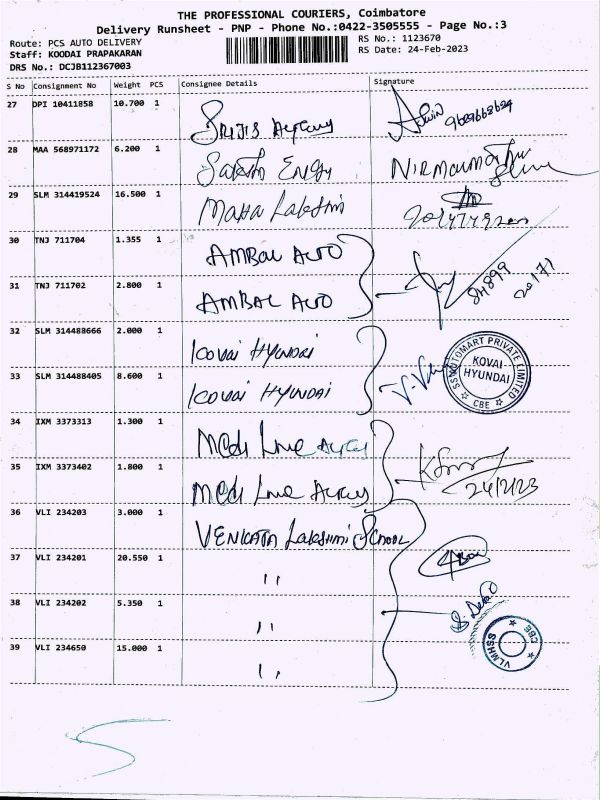 THE PROFESSIONAL COURIERS, Coimbatore
Delivery Runsheet - PNP - Phone No.:0422-3505555 - Page No.:3
Route: PCS AUTO DELIVERY RS No.: 1123670
Staff: KOODAI PRAPAKARAN RS Date: 24-Feb-2023
DRS No.: DCJB112367003
S No Consignment No Weight PCS Consignee Details Signature
27 DPI 10411858 10.700 1
28 MAA 568971172 6.200 1
29 SLM 314419524 16.500 1 Maha Lakshmi
30 TNJ 711704 1.355 1 AMBAL AUTO
31 TNJ 711702 2.800 1 AMBAL AUTO
32 SLM 314488666 2.000 1 KOVAI HYUNDAI
33 SLM 314488405 8.600 1 KOVAI HYUNDAI
SS AUTOMART PRIVATE LIMITED
KOVAI-
HYUNDAI
CBE
34 IXM 3373313 1.300 1
35 IXM 3373402 1.800 1
24/2/23
36 VLI 234203 3.000 1 VENKATA Lakshmi School
37 VLI 234201 20.550 1 "
38 VLI 234202 5.350 1 "
VLMHSS CBE
39 VLI 234650 15.000 1 "